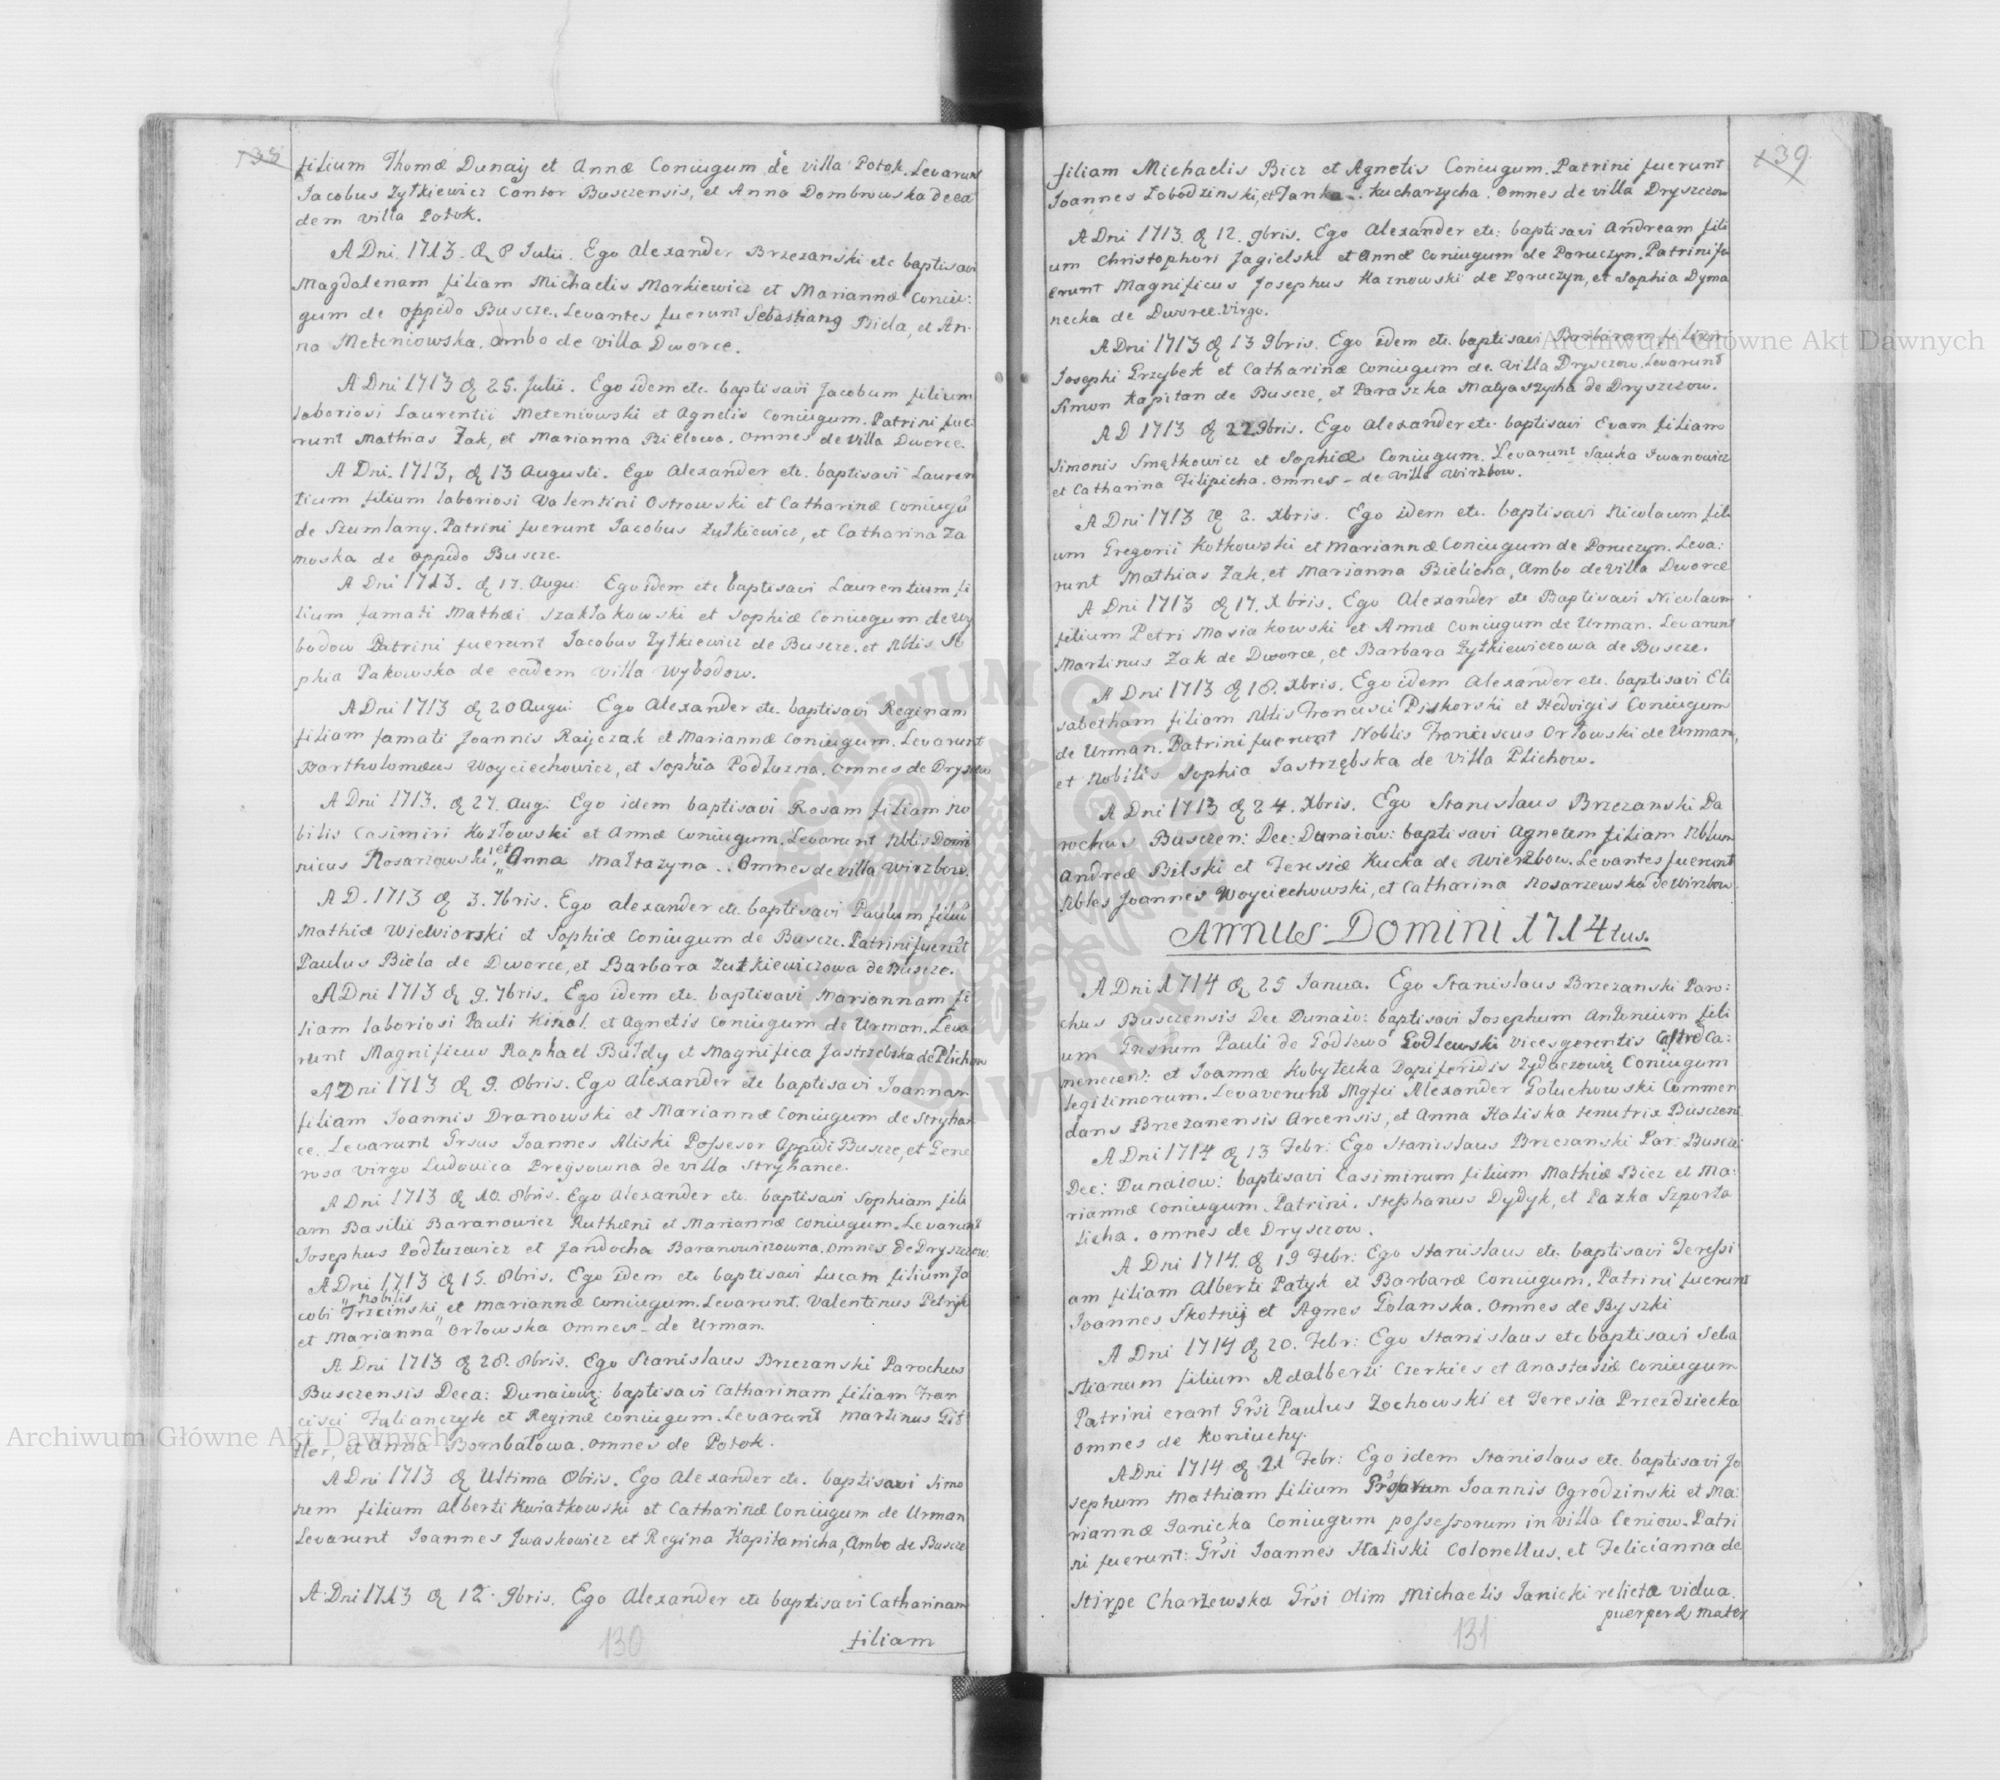 138
filium Thomæ Dunaij et Annæ Coniugum de villa Potok. Levarunt
Jacobus Zytkiewicz Cantor Busczensis, et Anna Dombrowska de ea
dem villa Potok.
A Dni. 1713. d. 8 Julii. Ego Alexander Brzezanski etc baptisavi
Magdalenam filiam Michaelis Markiewicz et Mariannæ Coniu:
gum de oppido Buscze. Levantes fuerunt Sebastiang Biela, et An-
na Meteniowska. ambo de villa Dworce.
A Dni 1713 d 25. Julii. Ego idem etc. baptisavi Jacobum filium
laboriosi Laurentii Meteniowski et Agnetis Coniugum. Patrini fue:
runt Mathias Zak, et Marianna Bielowa. omnes de villa Dworce.
A Dni. 1713, d 13 Augusti. Ego Alexander etc. baptisavi Lauren
tium filium laboriosi Valentini Ostrowski et Catharinæ Coniugũ
de Szumlany. Patrini fuerunt Jacobus Zutkiewicz, et Catharina Za
moska de oppido Buscze.
A Dni 1713. d 17. Augu: Ego idem etc baptisavi Laurentium fi
lium famati Mathæi Szaktakowski et Sophiæ Coniugum de Wy
bodow Patrini fuerunt Jacobus Zytkiewicz de Buscze. et Nblis So
phia Pakowska de eadem villa Wybodow.
A Dni 1713 d 20 Augu: Ego Alexander etc. baptisavi Reginam
filiam famati Joannis Raijczak et Mariannæ Coniugum. Levarunt
Bartholomæus Woyciechowicz, et Sophia Podtuzna. omnes de Dryszczow
A Dni 1713. d 27. Aug: Ego idem baptisavi Rosam filiam No
bilis Casimiri Kozłowski et Annæ Coniugum. Levarunt Nblis Domi
nicus Rosarzowski, et Anna Mattazyna .. Omnes de villa Wirzbow.
A D. 1713 d 3. 7bris. Ego alexander etc. baptisavi Paulum filiũ
Mathiæ Wiewiorski et Sophiæ Coniugum de Buscze. Patrini fuerũt
Paulus Biela de Dworce, et Barbara Zutkiewiczowa de Buscze.
A Dni 1713 d 9. 7bris. Ego idem etc. baptisavi Mariannam fi
liam laboriosi Pauli Kinal et Agnetis Coniugum de Urman. Leva
runt Magnificus Raphael Bułdy et Magnifica Jastrzebska de Plichow
A Dni 1713 d 9. 8bris. Ego Alexander etc baptisavi Joannam
filiam Joannis Dranowski et Mariannæ Coniugum de Stryhan
ce. Levarunt Grsus Joannes Aliski Possesor Oppidi Buscze, et Gene
rosa virgo Ludovica Preijsowna de villa Stryhance.
A Dni 1713 d 10. 8bris. Ego Alexander etc. baptisavi Sophiam fili
am Basilii Baranowicz Rutheni et Mariannæ Coniugum. Levarunt
Josephus Podtuzewicz et Jandocha Baranowiczowna. omnes de Dryszczow.
A Dni 1713 d 15. 8bris. Ego idem etc baptisavi Lucam filium Ja
cobi nobilis Trzcinski et Mariannæ Coniugum. Levarunt. Valentinus Petryk
et Marianna Orlowska omnes de Urman.
A Dni 1713 d 28. 8bris. Ego Stanislaus Brzezanski Parochus
Busczensis Deca: Dunaiowz: baptisavi Catharinam filiam Fran
cisci Julianczyk et Reginæ Coniugum. Levarunt Martinus Git
tler, et Anna Bombatowa. omnes de Potok.
A Dni 1713 d Ultima 8bris. Ego Alexander etc. baptisavi Simo
nem filium Alberti Kwiatkowski et Catharinæ Coniugum de Urman
Levarunt Joannes Iwaskowicz et Regina Kapitanicha, Ambo de Buscze
A Dni 1713 d 12. 9bris. Ego Alexander etc baptisavi Catharinam
filiam
130
139
filiam Michaelis Bicz et Agnetis Coniugum. Patrini fuerunt
Joannes Łobodzinski, et Janka.. Kucharzycha. Omnes de villa Dryszczow
A Dni 1713. d 12. 9bris. Ego Alexander etc: baptisavi Andream fili
um Christophori Jagielski et Annæ Coniugum de Poruczyn. Patrini fu
erunt Magnificus Josephus Haznowski de Poruczyn, et Sophia Dyma
necka de Dworce. Virgo.
A Dni 1713 d 13 9bris. Ego idem etc. baptisavi Barbaram filiam
Josephi Grzybek et Catharinæ Coniugum de villa Dryszczow. Levarunt
Simon Kapitan de Buscze, et Paraszka Matyaszycha de Dryszczow.
A D 1713 d 22 9bris. Ego Alexander etc. baptisavi Evam filiam
Simonis Smętkowicz et Sophiæ Coniugum. Levarunt Sauka Iwanowicz
et Catharina Filipicha. omnes - de villa Wirzbow.
A Dni 1713 d 2. Xbris. Ego idem etc. baptisavi Nicolaum fili
um Gregorii Kotkowski et Mariannæ Coniugum de Poruczyn. Leva:
runt Mathias Zak, et Marianna Bielicha, Ambo de villa Dworce
A Dni 1713 d 17. Xbris. Ego Alexander etc Baptisavi Nicolaum
filium Petri Mosiakowski et Annæ Coniugum de Urman. Levarunt
Martinus Zak de Dworce, et Barbara Zytkiewiczowa de Buscze.
A Dni 1713 d 18. Xbris. Ego idem Alexander etc. baptisavi Eli
sabetham filiam Nblis Francisci Piskorski et Hedvigis Coniugum
de Urman. Patrini fuerunt Noblis Franciscus Orłowski de Urman,
et Nobilis Sophia Jastrzębska de villa Plichow.
A Dni 1713 d 24. Xbris. Ego Stanislaus Brzezanski Pa
rochus Busczen: Dec: Dunaiow: baptisavi Agnetem filiam Nblium
Andreæ Bilski et Teresiæ Kucka de Wierzbow. Levantes fuerunt
Nbles Joannes Woyciechowski, et Catharina Rosarzewska de Wirzbow
Annus Domini 1714tus.
A Dni 1714 d 25 Janua. Ego Stanislaus Brzezanski Paro:
chus Busczensis Dec Dunaio: baptisavi Josephum Antonium fili
um Grsrum Pauli de Godlewo Godlewski vicesgerentis Castro Ca:
menecens: et Joannæ Kobytecka Dapiferidis Zydaczowię Coniugum
legitimorum. Levaverunt Mgfci Alexander Gołuchowski Commen
dans Brzezanensis Arcensis, et Anna Haliska tenutrix Busczen
A Dni 1714 d 13 Febr: Ego Stanislaus Brzezanski Par: Buscze:
Dec: Dunaiow: baptisavi Casimirum filium Mathiæ Bicz et Ma:
riannæ Coniugum. Patrini. Stephanus Dydyk, et Pazka Szporta
licha. omnes de Dryszczow.
A Dni 1714. d 19 Febr: Ego Stanislaus etc. baptisavi Teressi
am filiam Alberti Patyk et Barbaræ Coniugum. Patrini fuerunt
Joannes Skotnij et Agnes Golanska. omnes de Byszki
A Dni 1714 d 20. Febr: Ego Stanislaus etc baptisavi Seba
stianum filium Adalberti Czerkies et Anastasiæ Coniugum
Patrini erant Grsi Paulus Zochowski et Teresia Przezdziecka
omnes de Koniuchy.
A Dni 1714 d 21 Febr: Ego idem Stanislaus etc. baptisavi Jo
sephum Mathiam filium Joannis Ogrodzinski et Ma:
riannæ Janicka Coniugum possessorum in villa Ceniow. Patri
ni fuerunt: Grsi Joannes Haliski Colonellus, et Felicianna de
Stirpe Charzewska Grsi Olim Michaelis Janicki relicta vidua.
puerperæ mater
131
Archiwum Główne Akt Dawnych
Archiwum Główne Akt Dawnych
ARCHIWUM GŁÓWNE AKT DAWNYCH